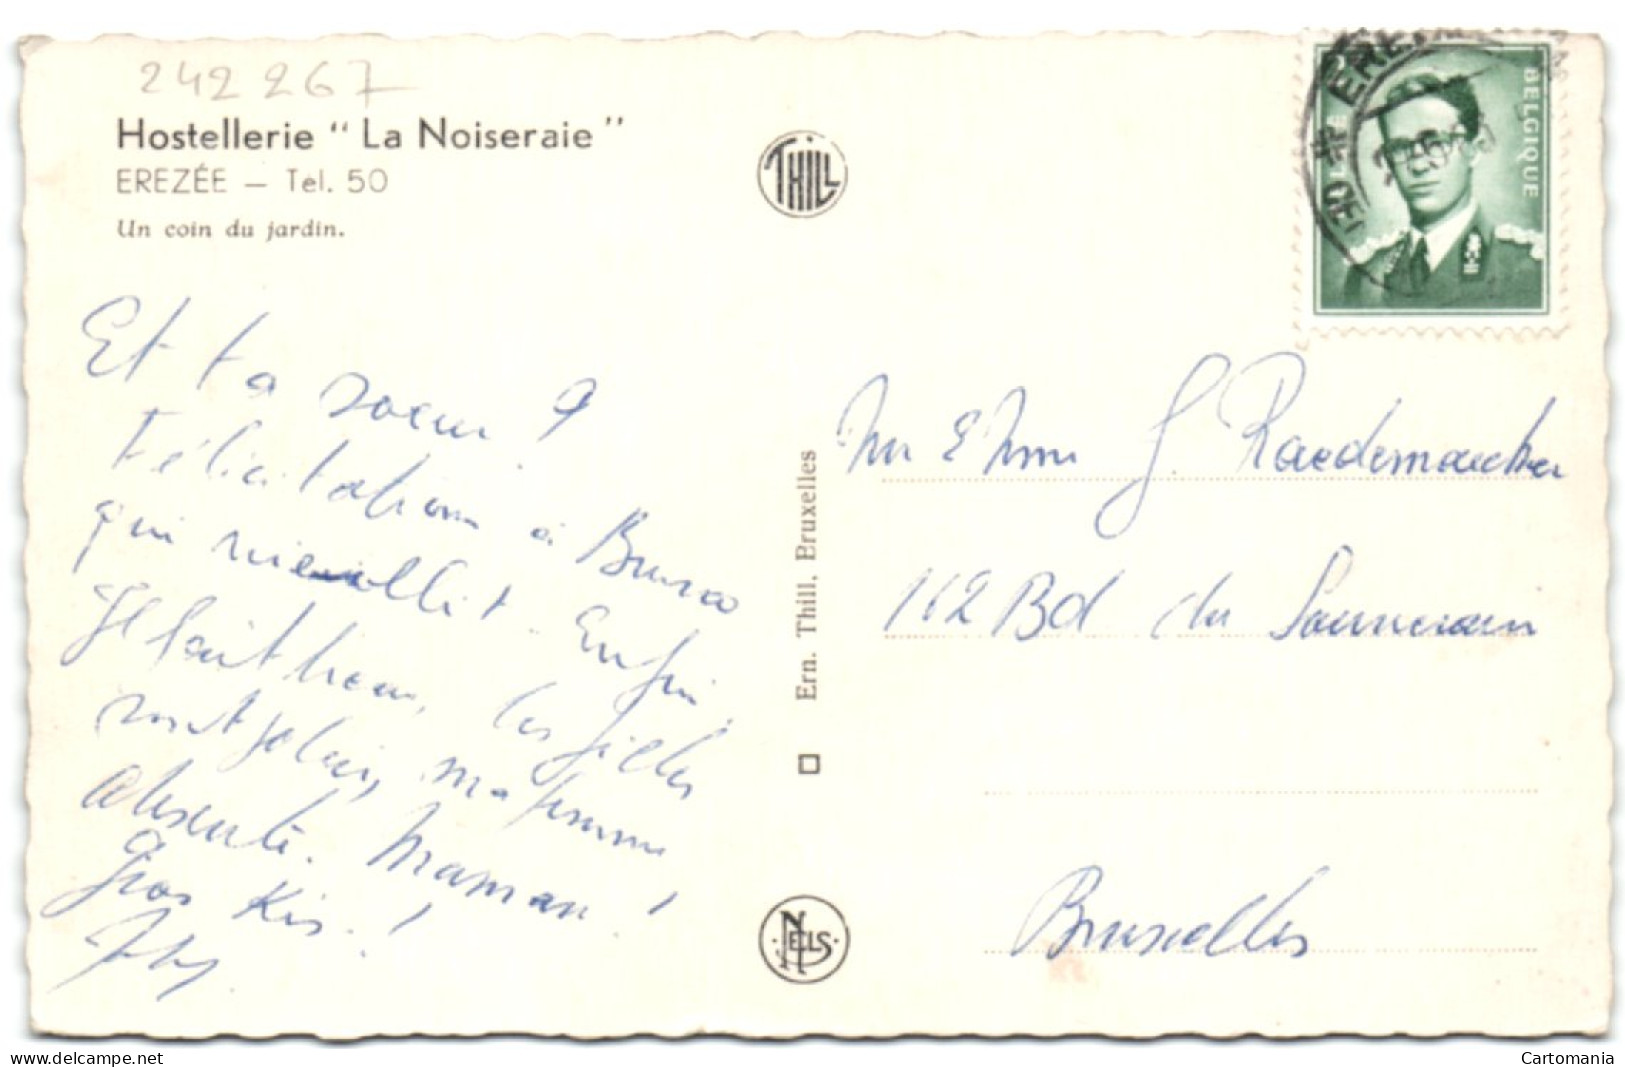 242267
Hostellerie " La Noiseraie "
EREZÉE — Tel. 50
Un coin du jardin.
THILL
BELGIQUE
EREZ
Et ta soeur ?
Félicitations à Bruno
qui vieillit. Enfin,
Il fait beau, les filles
sont jolies, ma femme
absente. Maman !
Gros Kis.!
Mr & Mme J. Raedemaecker
162 Bd du Souverain
Bruxelles
Ern. Thill, Bruxelles
NELS
www.delcampe.net
Cartomania